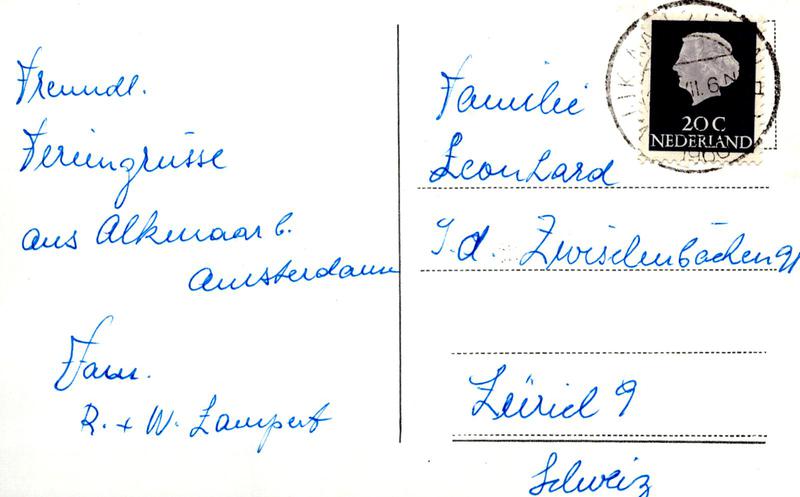 Freundl.
Feriengrüsse
aus Alkmaar b.
Amsterdam
Fam.
R. + W. Lampert
Familie
Leonhard
I. d. Zwischenbächen 91
Zürich 9
Schweiz
20 C
NEDERLAND